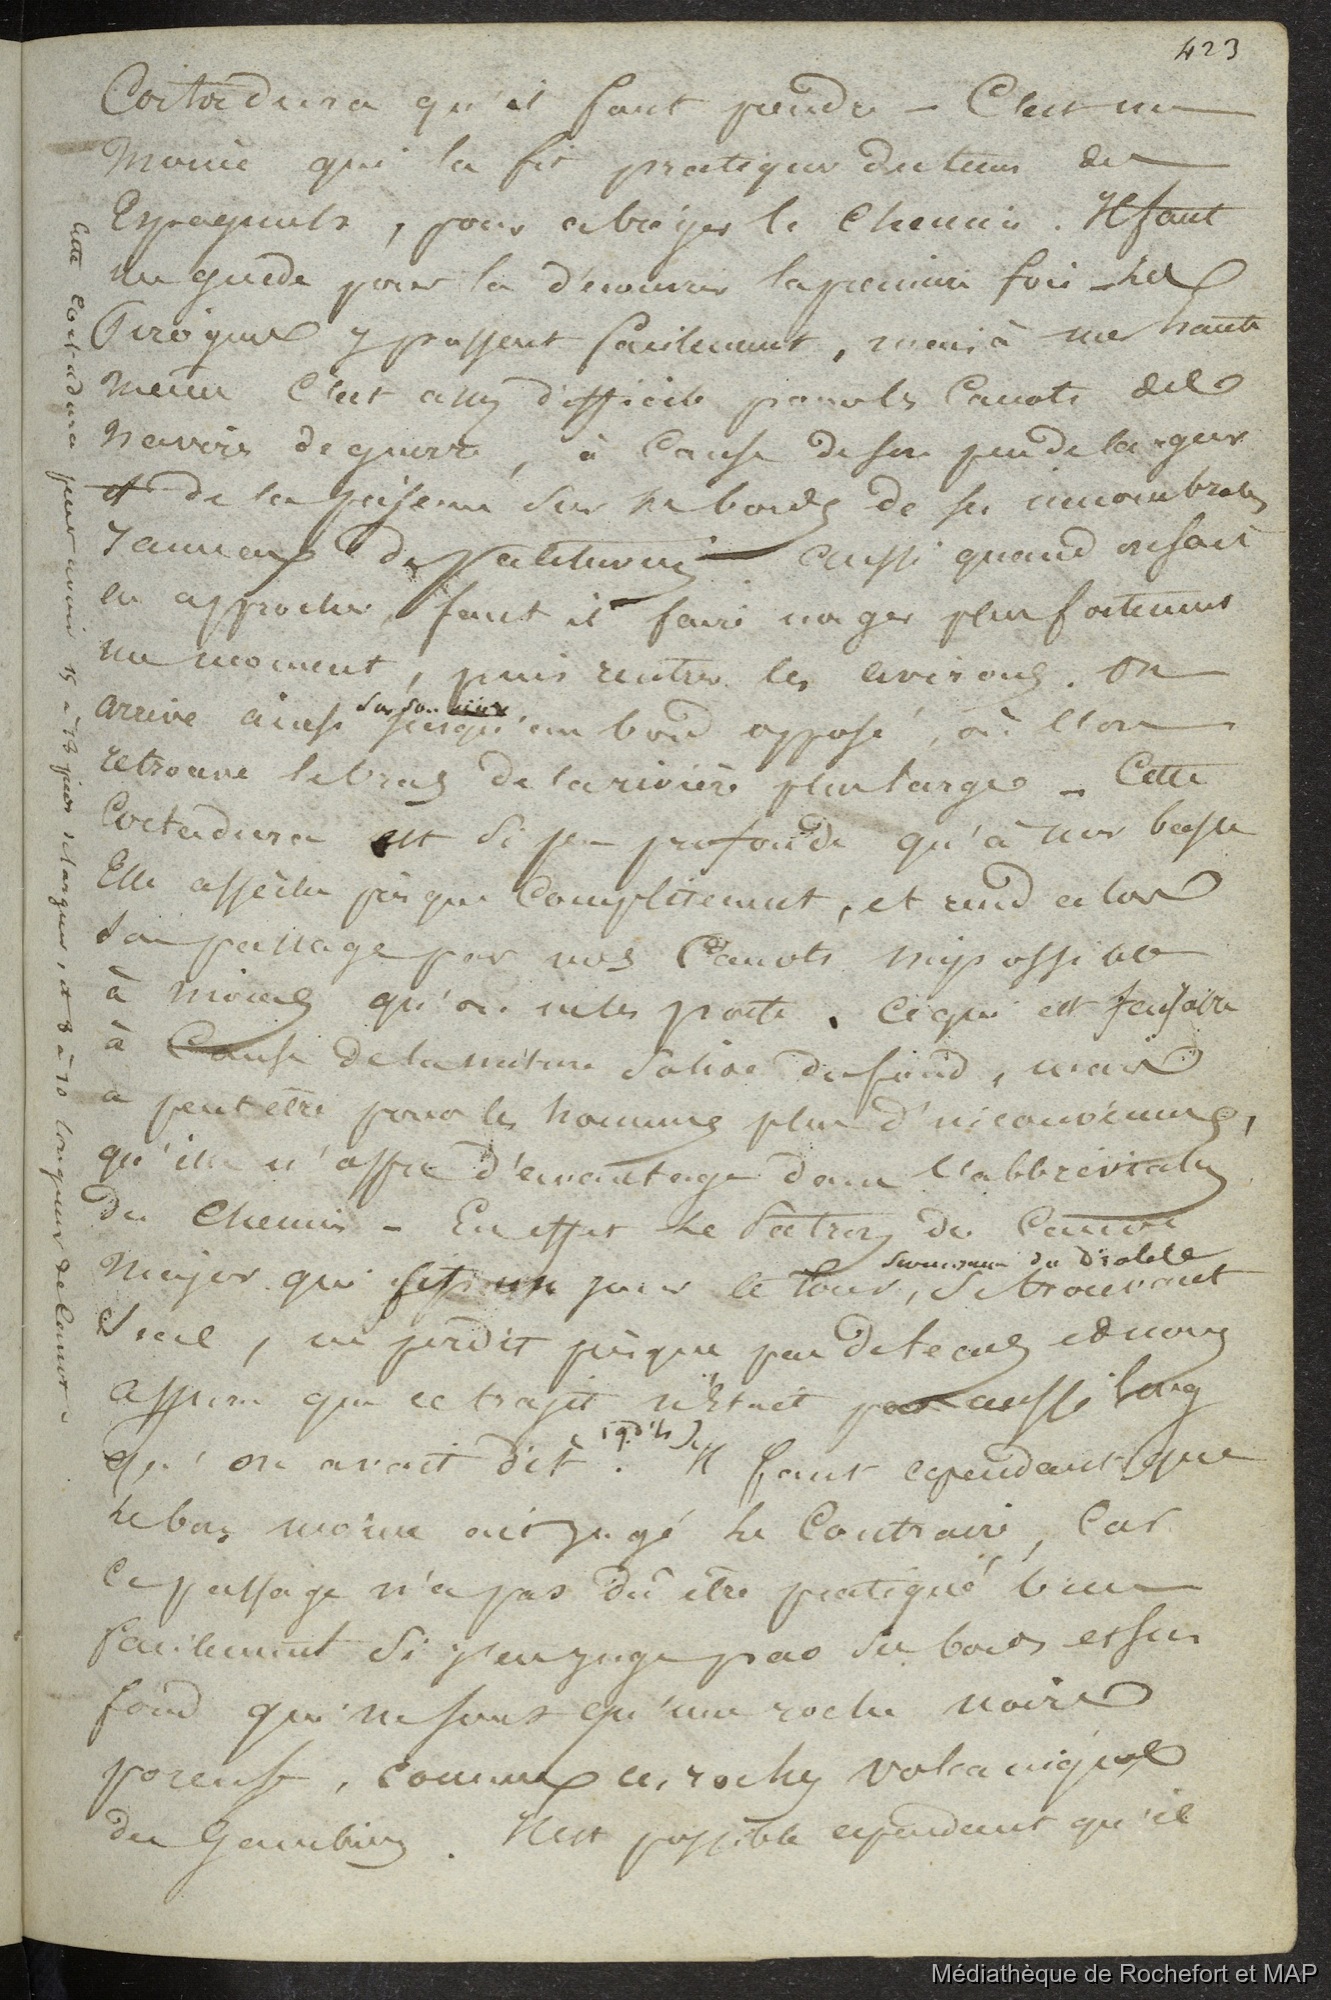 423
Cortadura qu'il faut prendre – C'est un
moine qui la fit pratiquer du tems des
Espagnols, pour abréger le chemin. Il faut
un guide pour la découvrir la première fois – les
Pirogues y passent facilement, mais à mer haute
même c'est assez difficile pour les canots des
navires de guerre, à cause de son peu de largeur
et de la présence sur les bords de ses innombrables
rameaux de Palétuviers aussi quand on s'en
approche, faut il faire nager plus fortement
un moment, puis rentrer les avirons. On
arrive ainsi sur son jusqu'au bord opposé, où l'on
retrouve le bras de la rivière plus large – Cette
Cortadura est si peu profonde qu'à mer basse
Elle assèche presque complètement, et rend alors
son passage par nos canots impossible
à moins qu'on ne les porte. Ce qui est faisable
à cause de la nature solide du fond, mais
a peut être pour les hommes plus d'inconvéniens,
qu'elle n'offre d'avantage dans l'abbréviation
du chemin – En effet le Patron du Canot
Major qui fit un jour le tour, se trouvant
surnommé du Diable
seul, ne perdit presque pas de tems et nous
assura que ce trajet n'était pas aussi long
qu'on avait dit. Il faut cependant que
le bon moine ait jugé le contraire, car
ce passage n'a pas dû être pratiqué bien
facilement si j'en juge par ses bords et son
fond qui ne sont qu'une roche noire
poreuse, comme ces roches volcaniques
des Gambier. Il est possible cependant qu'il
Cette Cortadura peut avoir 15 à 18 pieds de largeur, et 8 à 10 longueurs de canot.
Médiathèque de Rochefort et MAP